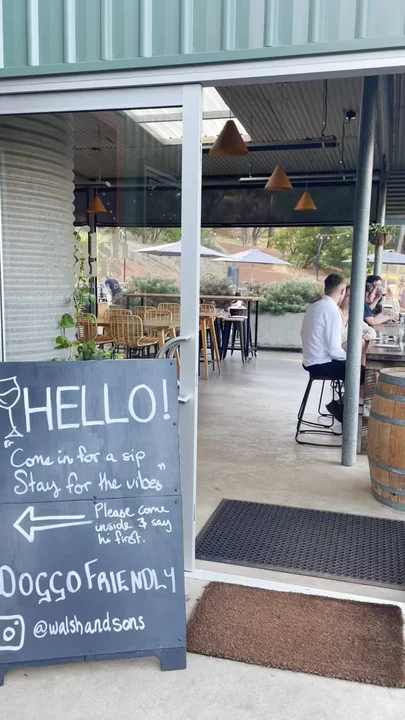 HELLO!
"Come in for a sip
Stay for the vibes"
Please come
inside & say
hi first.
DOGGO FRIENDLY
@walshandsons